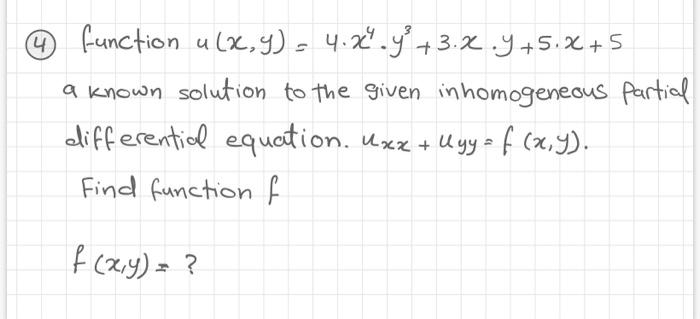 ④ function u(x,y) = 4·x⁴·y³+3·x·y+5·x+5
a known solution to the given inhomogeneous partial
differential equation. uxx + uyy = f (x,y).
Find function f
f (x,y) = ?